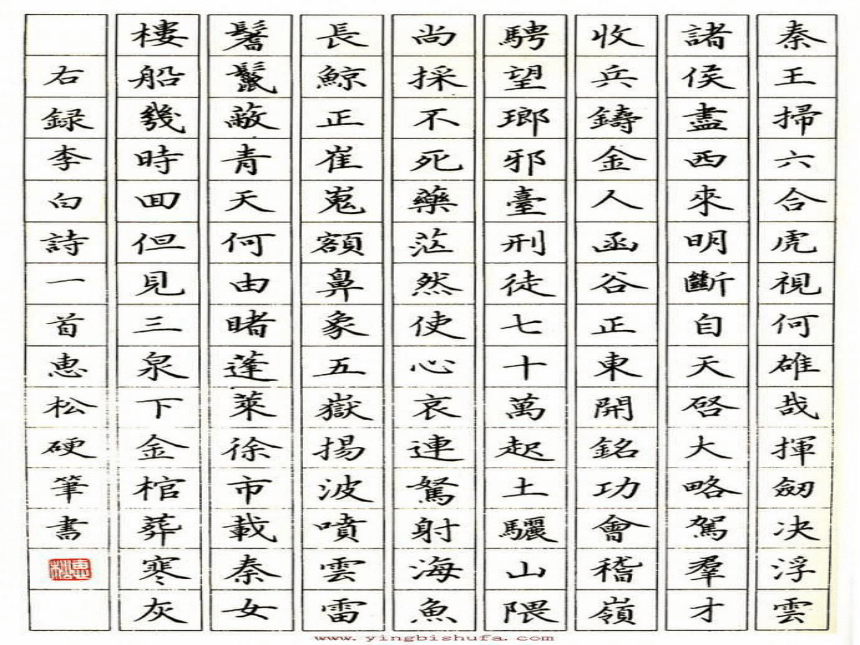 秦王掃六合虎視何雄哉揮劒决浮雲
諸侯盡西來明斷自天啓大略駕羣才
收兵鑄金人函谷正東開銘功會稽嶺
騁望瑯邪臺刑徒七十萬起土驪山隈
尚採不死藥茫然使心哀連駑射海魚
長鯨正崔嵬額鼻象五嶽揚波噴雲雷
鬐鬣蔽青天何由睹蓬萊徐市載秦女
樓船幾時回但見三泉下金棺葬寒灰
右録李白詩一首惠松硬筆書
惠松
www.yingbishufa.com